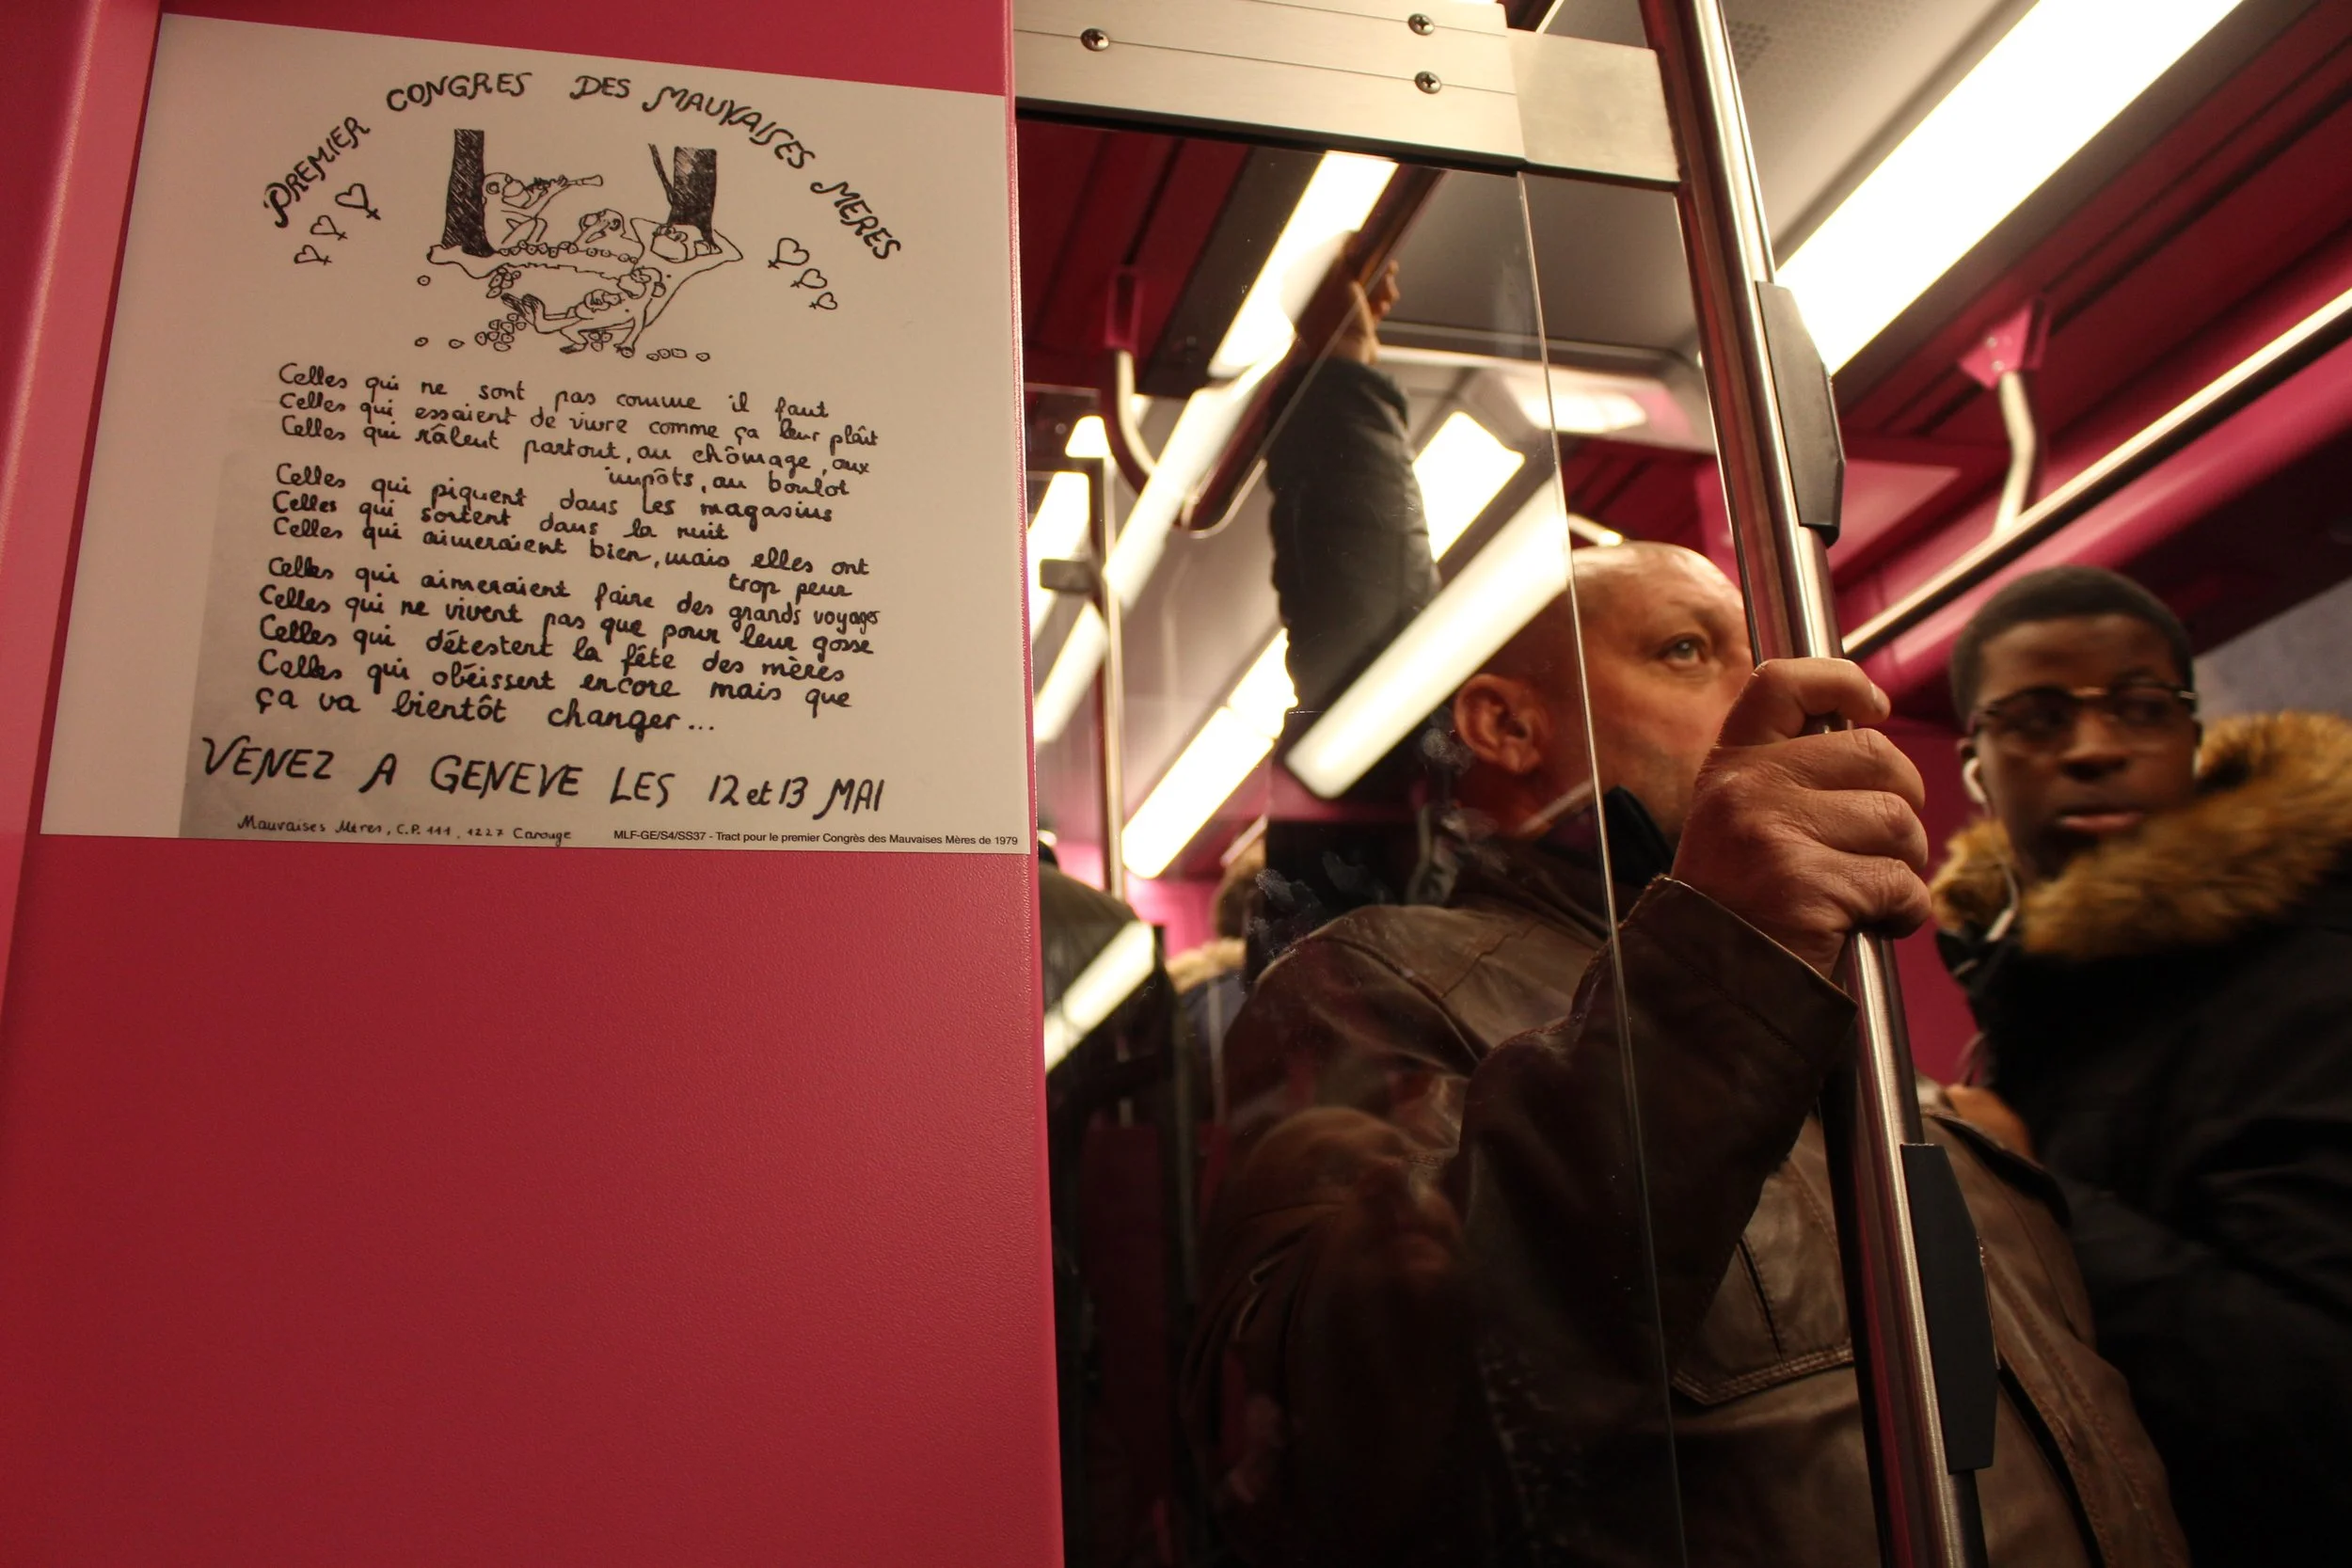 PREMIER CONGRES DES MAUVAISES MERES
Celles qui ne sont pas comme il faut
Celles qui essaient de vivre comme ça leur plaît
Celles qui râlent partout, au chômage, aux
impôts, au boulot
Celles qui piquent dans les magasins
Celles qui sortent dans la nuit
Celles qui aimeraient bien, mais elles ont
trop peur
Celles qui aimeraient faire des grands voyages
Celles qui ne vivent pas que pour leur gosse
Celles qui détestent la fête des mères
Celles qui obéissent encore mais que
ça va bientôt changer...
VENEZ A GENEVE LES 12 et 13 MAI
Mauvaises Mères, C.P. 111, 1227 Carouge
MLF-GE/S4/SS37 - Tract pour le premier Congrès des Mauvaises Mères de 1979